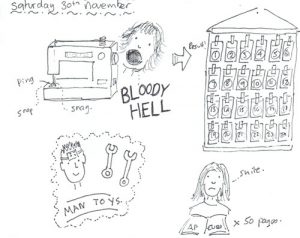 Saturday 30th November
Ping
snap
snag.
BLOODY
HELL
Result
MAN TOYS
smile.
x 50 pages.